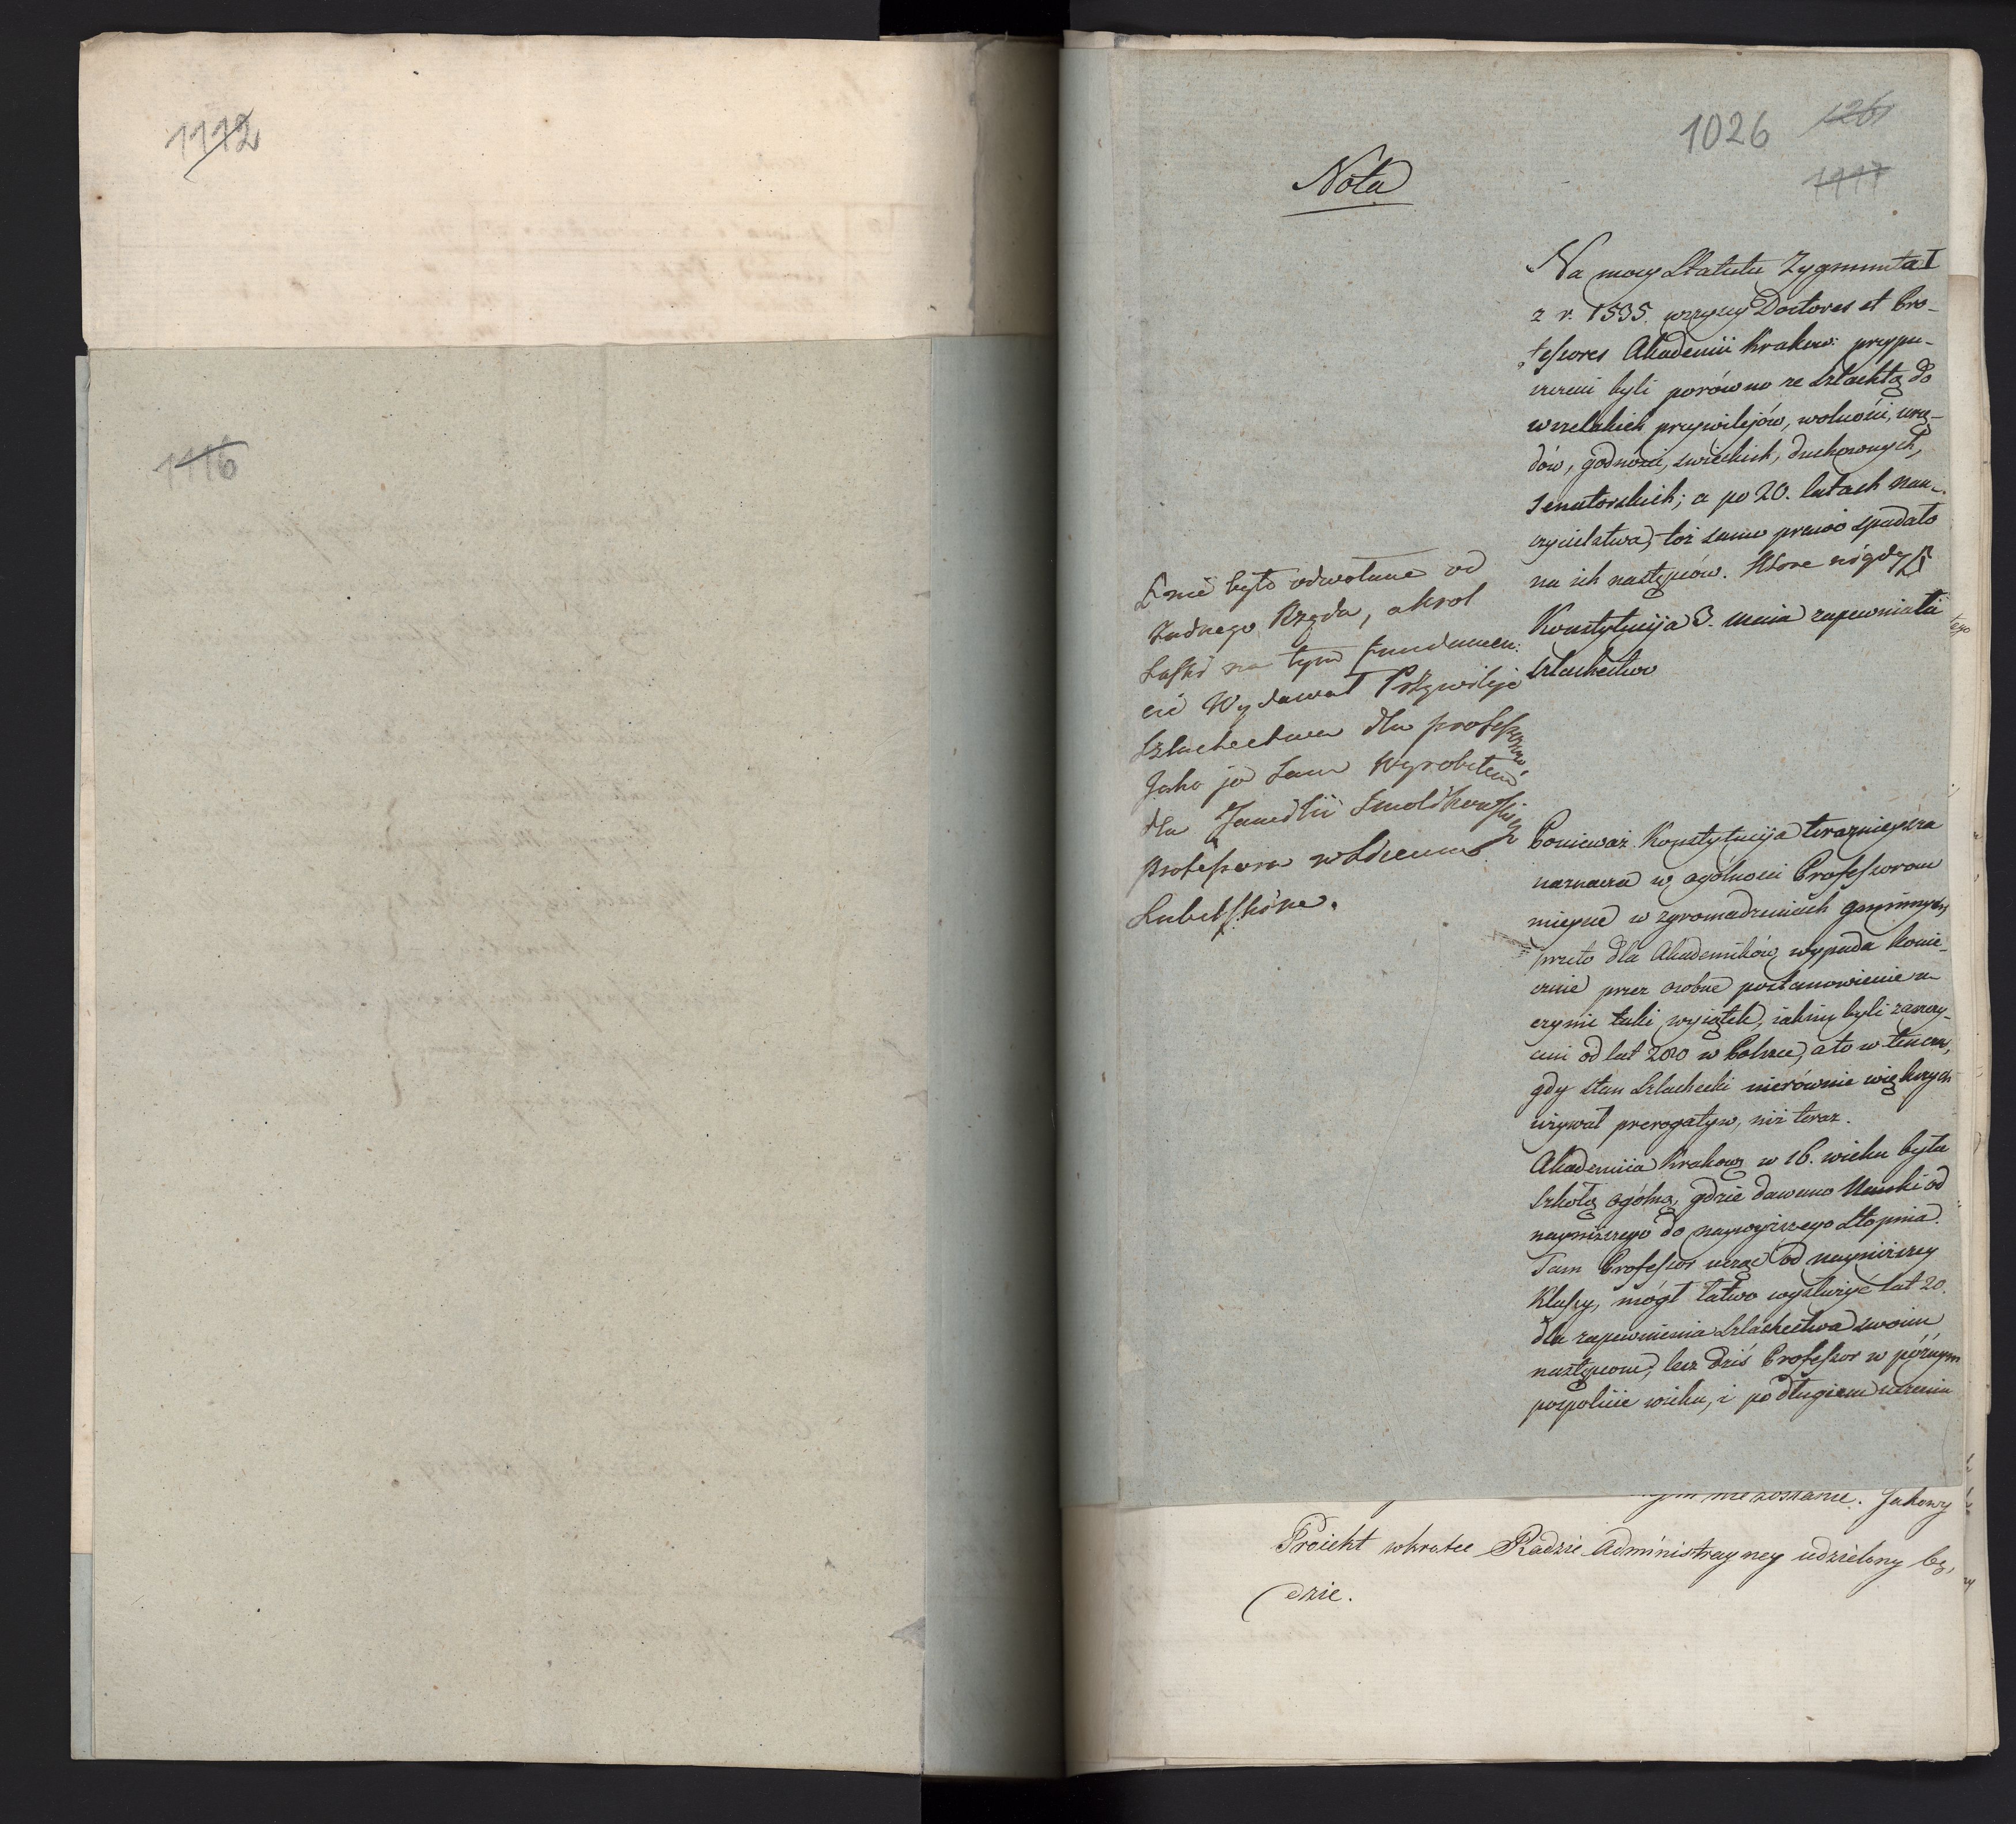 1112
1116
1026 126
1117
Nota
Na mocy Statutu Zygmunta I
z r. 1535. wszyscy Doctores et Pro-
fessores Akademii Krakow: przypu-
szczeni byli porówno ze szlachtą do
wszelakich przywilejów, wolności, urzę-
dów, godności, swieckich, duchownych,
Senatorskich; a po 20. latach nau-
czycielstwa, toż samo prawo spadało
na ich następców. Ktore nigdy
nie było odwołane od
żadnego Rządu, a krol
Saski na tym fundamen-
cie Wydawał Przywileje
Szlachectwa dla professorów,
Jako ja sam Wyrobiłem
dla
Professora w Liceum
Lubelskim.
Konstytucyja 3. maia zapewniała
szlachectwo
Ponieważ Konstytucyja teraznieysza
naznacza w ogólności Professorom
mieysce w zgromadzeniach gminnych,
przeto dla Akademików wypada konie-
cznie przez osobne postanowienie u-
czynić taki wyiątek, jakim byli zaszczy-
ceni od lat 200 w Polszcze, a to w ten czas,
gdy stan szlachecki nierównie większych
używał prerogatyw, niż teraz.
Akademiia Krakow w 16. wieku była
Szkołą ogólną, gdzie dawano Nauki od
nayniższego do naywyższego stopnia.
Tam Professor ucząc od nayniższey
Klassy, mógł łatwo wysłużyć lat 20.
dla zapewnienia szlachectwa swoim
następcom; lecz dziś Professor w późnym
pospolicie wieku, i po długiem uczeniu
nie zostanie. Jakowy
Proiekt wkrotce Radzie Administracyney udzielony bę-
dzie.